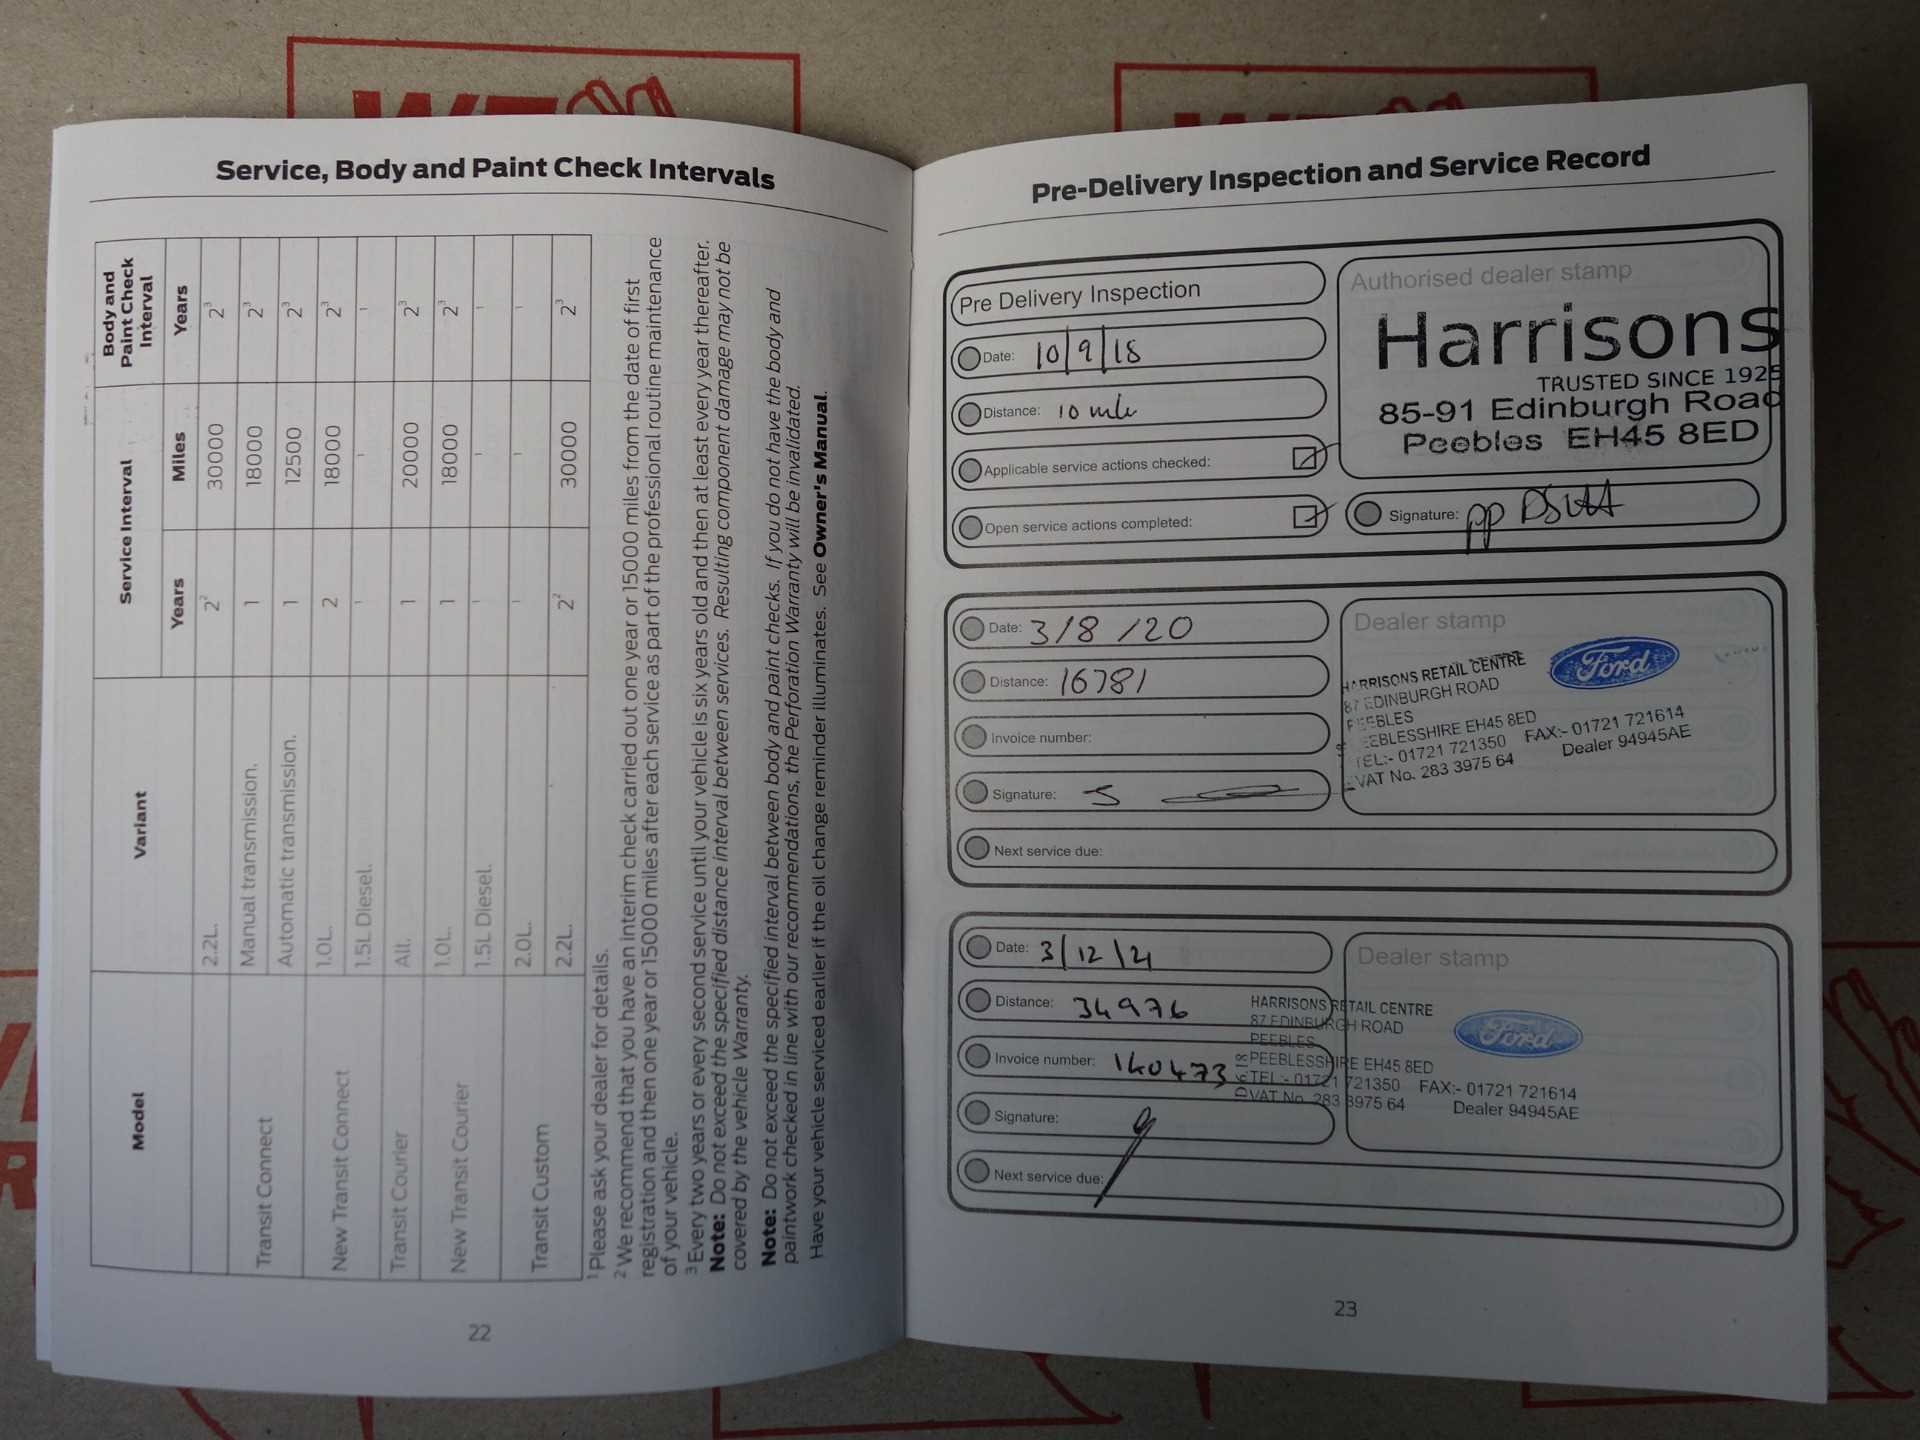 Service, Body and Paint Check Intervals
Model Variant Service Interval Body and Paint Check Interval
Years Miles Years
2.2L. 2² 30000 2³
Transit Connect Manual transmission. 1 18000 2³
Automatic transmission. 1 12500 2³
New Transit Connect 1.0L. 2 18000 2³
1.5L Diesel. 1 1 1
Transit Courier All. 1 20000 2³
New Transit Courier 1.0L. 1 18000 2³
1.5L Diesel. 1 1 1
Transit Custom 2.0L. 1 1 1
2.2L. 2² 30000 2³
¹ Please ask your dealer for details.
² We recommend that you have an interim check carried out one year or 15000 miles from the date of first
registration and then one year or 15000 miles after each service as part of the professional routine maintenance
of your vehicle.
³ Every two years or every second service until your vehicle is six years old and then at least every year thereafter.
Note: Do not exceed the specified distance interval between services. Resulting component damage may not be
covered by the vehicle Warranty.
Note: Do not exceed the specified interval between body and paint checks. If you do not have the body and
paintwork checked in line with our recommendations, the Perforation Warranty will be invalidated.
Have your vehicle serviced earlier if the oil change reminder illuminates. See Owner's Manual.
22
Pre-Delivery Inspection and Service Record
Pre Delivery Inspection
Date: 10/9/18
Distance: 10 mls
Applicable service actions checked:
Open service actions completed:
Authorised dealer stamp
Harrisons
TRUSTED SINCE 1925
85-91 Edinburgh Road
Peebles EH45 8ED
Signature: pp
Date: 3/8/20
Distance: 16781
Invoice number:
Signature:
Next service due:
Dealer stamp
Ford
HARRISONS RETAIL CENTRE
87 EDINBURGH ROAD
PEEBLES
PEEBLESSHIRE EH45 8ED
TEL:- 01721 721350 FAX:- 01721 721614
VAT No. 283 3975 64 Dealer 94945AE
Date: 3/12/21
Distance: 34976
Invoice number: 140473
Signature:
Next service due:
Dealer stamp
Ford
HARRISONS RETAIL CENTRE
87 EDINBURGH ROAD
PEEBLES
PEEBLESSHIRE EH45 8ED
TEL:- 01721 721350 FAX:- 01721 721614
VAT No. 283 3975 64 Dealer 94945AE
23